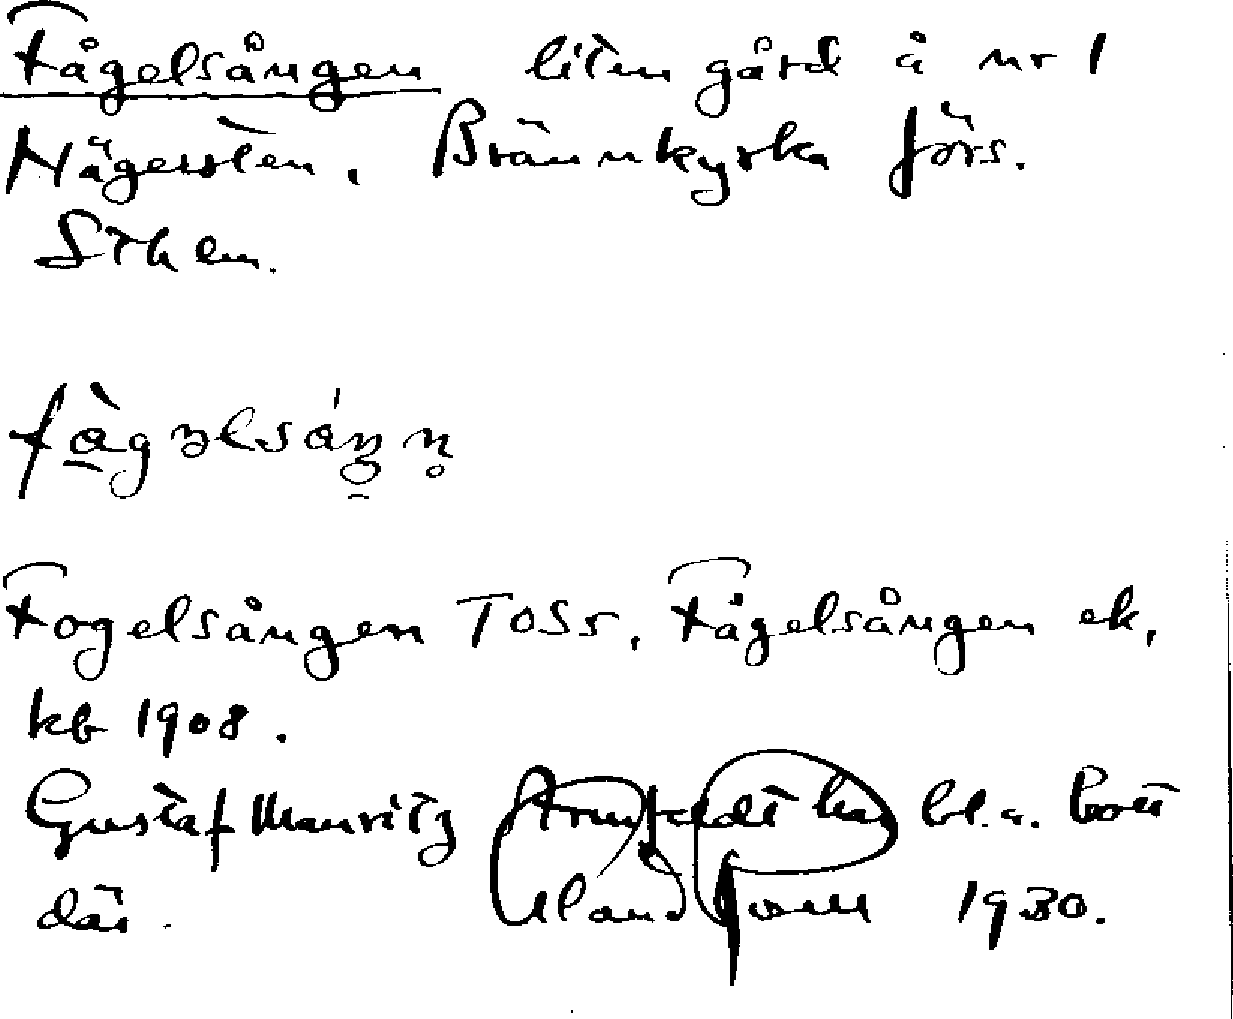 Fågelsången liten gård å nr 1
Hägersten, Brännkyrka förs.
Sthlm.
Fogelsången TOSS, Fågelsången ek,
kb 1908.
Gustaf Mauritz Armfeldt har bl.a. bott
där. 1930.